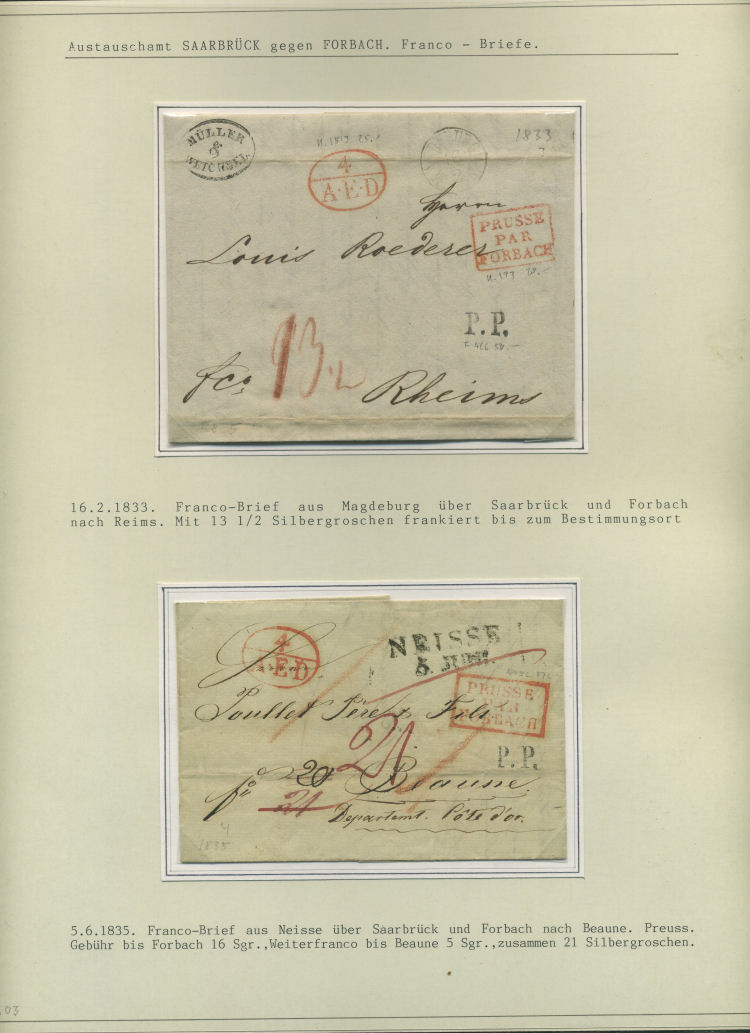 Austauschamt SAARBRÜCK gegen FORBACH. Franco - Briefe.
MÜLLER
&
WEICHSEL
4
A·E·D
1833
Herrn
PRUSSE
PAR
FORBACH
Louis Roederer
P.P.
fco
Rheims
16.2.1833. Franco-Brief aus Magdeburg über Saarbrück und Forbach
nach Reims. Mit 13 1/2 Silbergroschen frankiert bis zum Bestimmungsort
4
A·E·D
NEISSE
PRUSSE
PAR
FORBACH
Poullet Père & Fils
21
P.P.
20 Beaune.
fco 21
Departemt. Côte d'or.
4
1835
5.6.1835. Franco-Brief aus Neisse über Saarbrück und Forbach nach Beaune. Preuss.
Gebühr bis Forbach 16 Sgr.,Weiterfranco bis Beaune 5 Sgr.,zusammen 21 Silbergroschen.